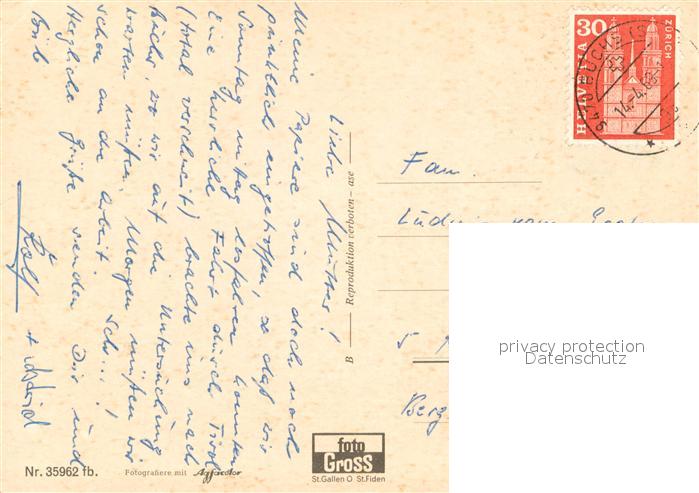 Liebe Mutter!
Meine Papiere sind doch noch
pünktlich eingetroffen, so daß wir
Sonntag mittag losfahren konnten.
Eine herrliche Fahrt durch Tirol
(total verschneit) brachte uns nach
Buchs, wo wir auf die Untersuchung
warten müßen. Morgen müßen wir
schon an die Arbeit. Sch...!
Herzliche Grüße senden Dir und
Rolf +
B — Reproduktion verboten - ase —
Fam.
Ludwig vom
5
Berg
HELVETIA 30 ZÜRICH
9470 BUCHS
14.-4.
privacy protection
Datenschutz
foto
GROSS
St.Gallen O St.Fiden
Nr. 35962 fb.
Fotografiere mit Agfacolor